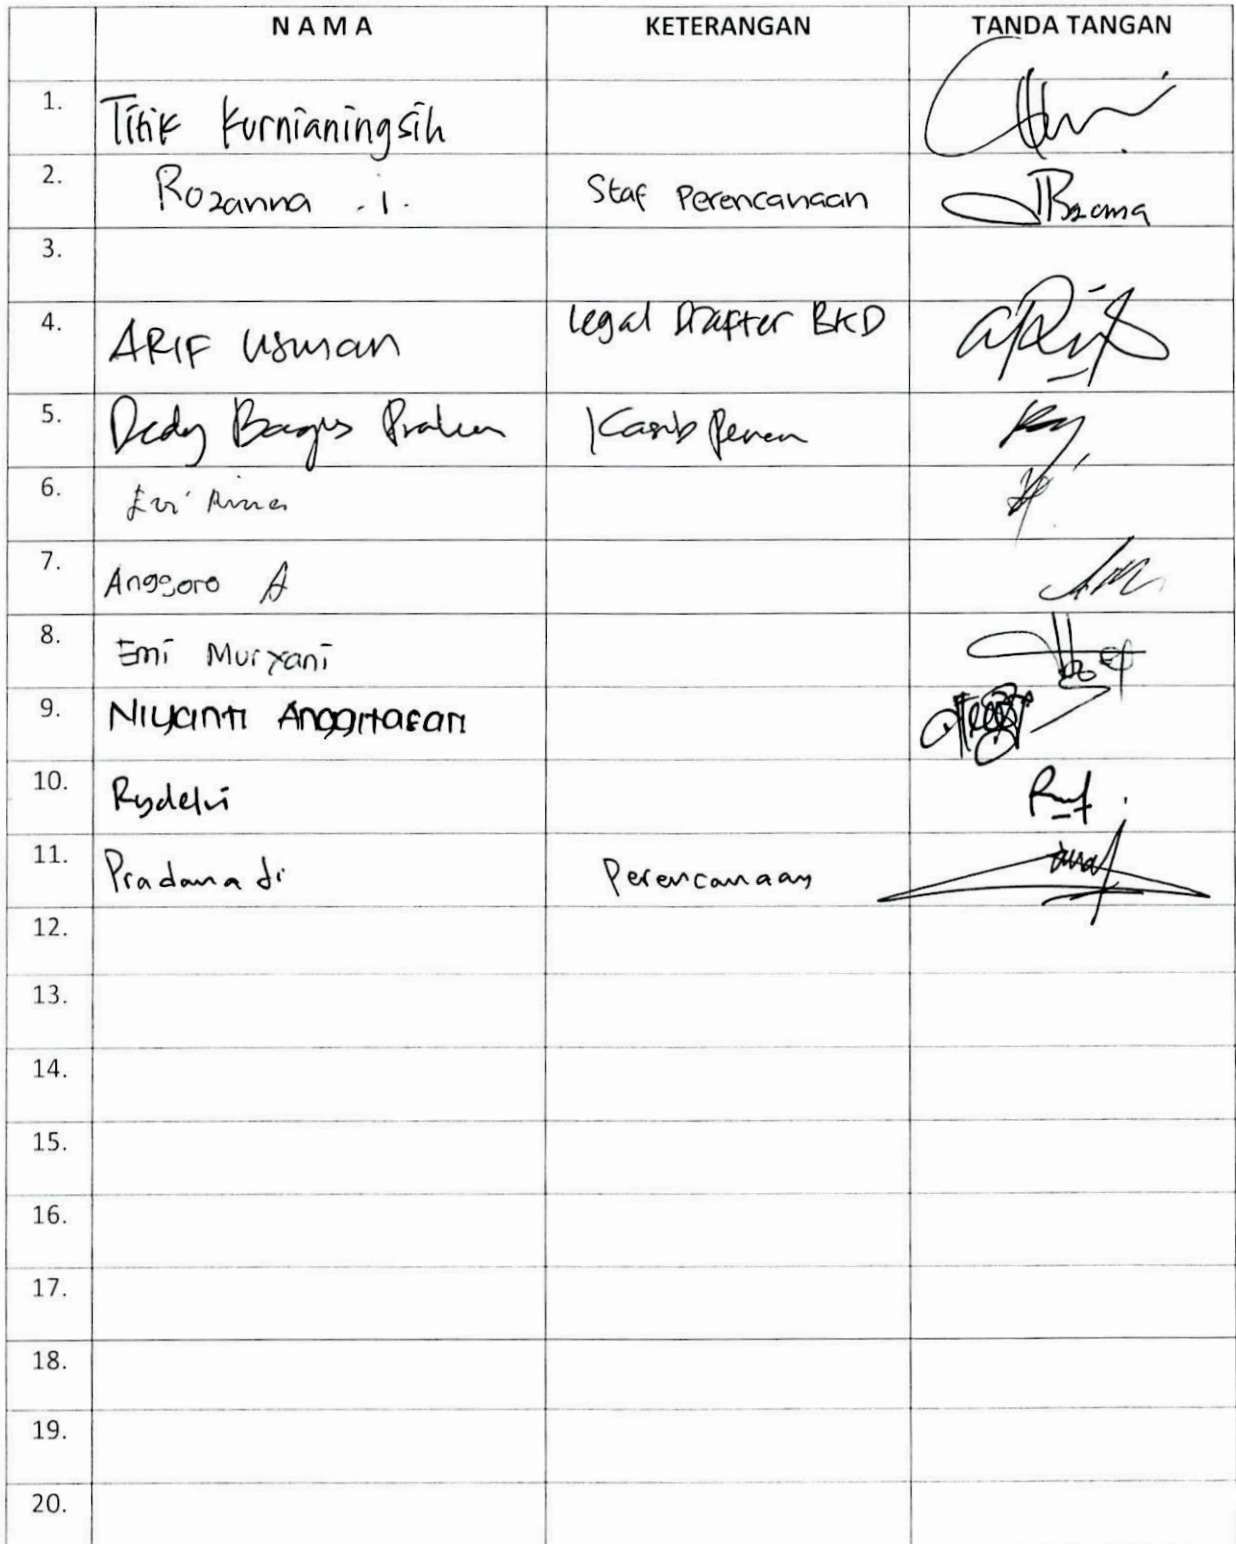 N A M A KETERANGAN TANDA TANGAN
1. Titik Kurnianingsih
2. Rozanna .i. Staf Perencanaan
3.
4. ARIF Usman Legal Drafter BKD
5. Dedy Bagus
6. Evi
7. Anggoro A
8. Emi Muryani
9. Niyanti Anggitasari
10.
11. Pradana Perencanaan
12.
13.
14.
15.
16.
17.
18.
19.
20.